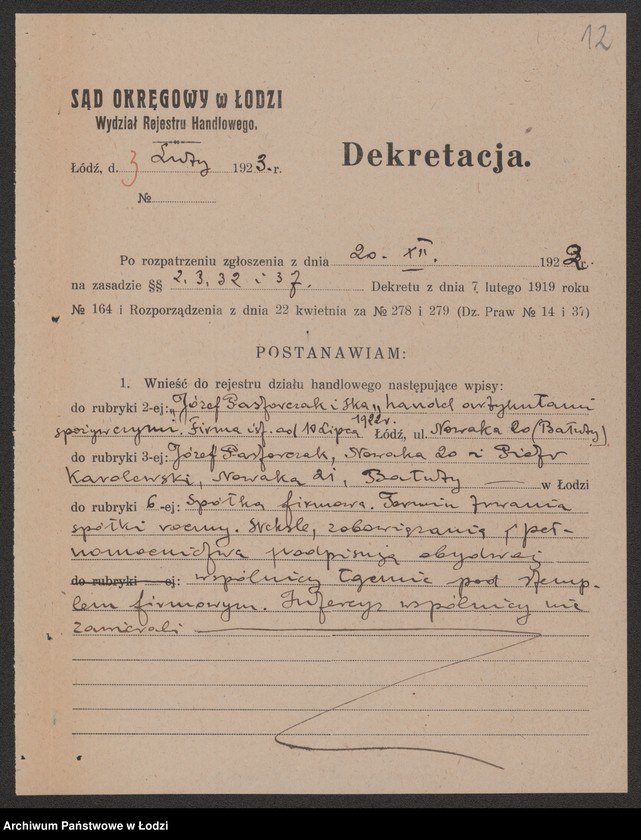 12
SĄD OKRĘGOWY w ŁODZI
Wydział Rejestru Handlowego.
Łódź, d. 3 Luty 1923. r.
№
Dekretacja.
Po rozpatrzeniu zgłoszenia z dnia 20. XII. 1922 r.
na zasadzie §§ 2, 3, 32 i 37. Dekretu z dnia 7 lutego 1919 roku
№ 164 i Rozporządzenia z dnia 22 kwietnia za № 278 i 279 (Dz. Praw № 14 i 37)
POSTANAWIAM:
1. Wnieść do rejestru działu handlowego następujące wpisy:
do rubryki 2-ej: „Józef i Ska„ handel artykułami
spożywczymi. Firma istn. od 10 Lipca 1922 r. Łódź, ul. Nowaka 20 (Bałuty)
do rubryki 3-ej: Józef Nowaka 20 i Piotr
Karolewski, Nowaka 21, Bałuty w Łodzi
do rubryki 6-ej: Spółka firmowa. Termin trwania
spółki roczny. Weksle, zobowiązania i peł-
nomocnictwa podpisują obydwaj
do rubryki -ej: wspólnicy łącznie pod stemp-
lem firmowym. Intercyz wspólnicy nie
zawierali
Archiwum Państwowe w Łodzi